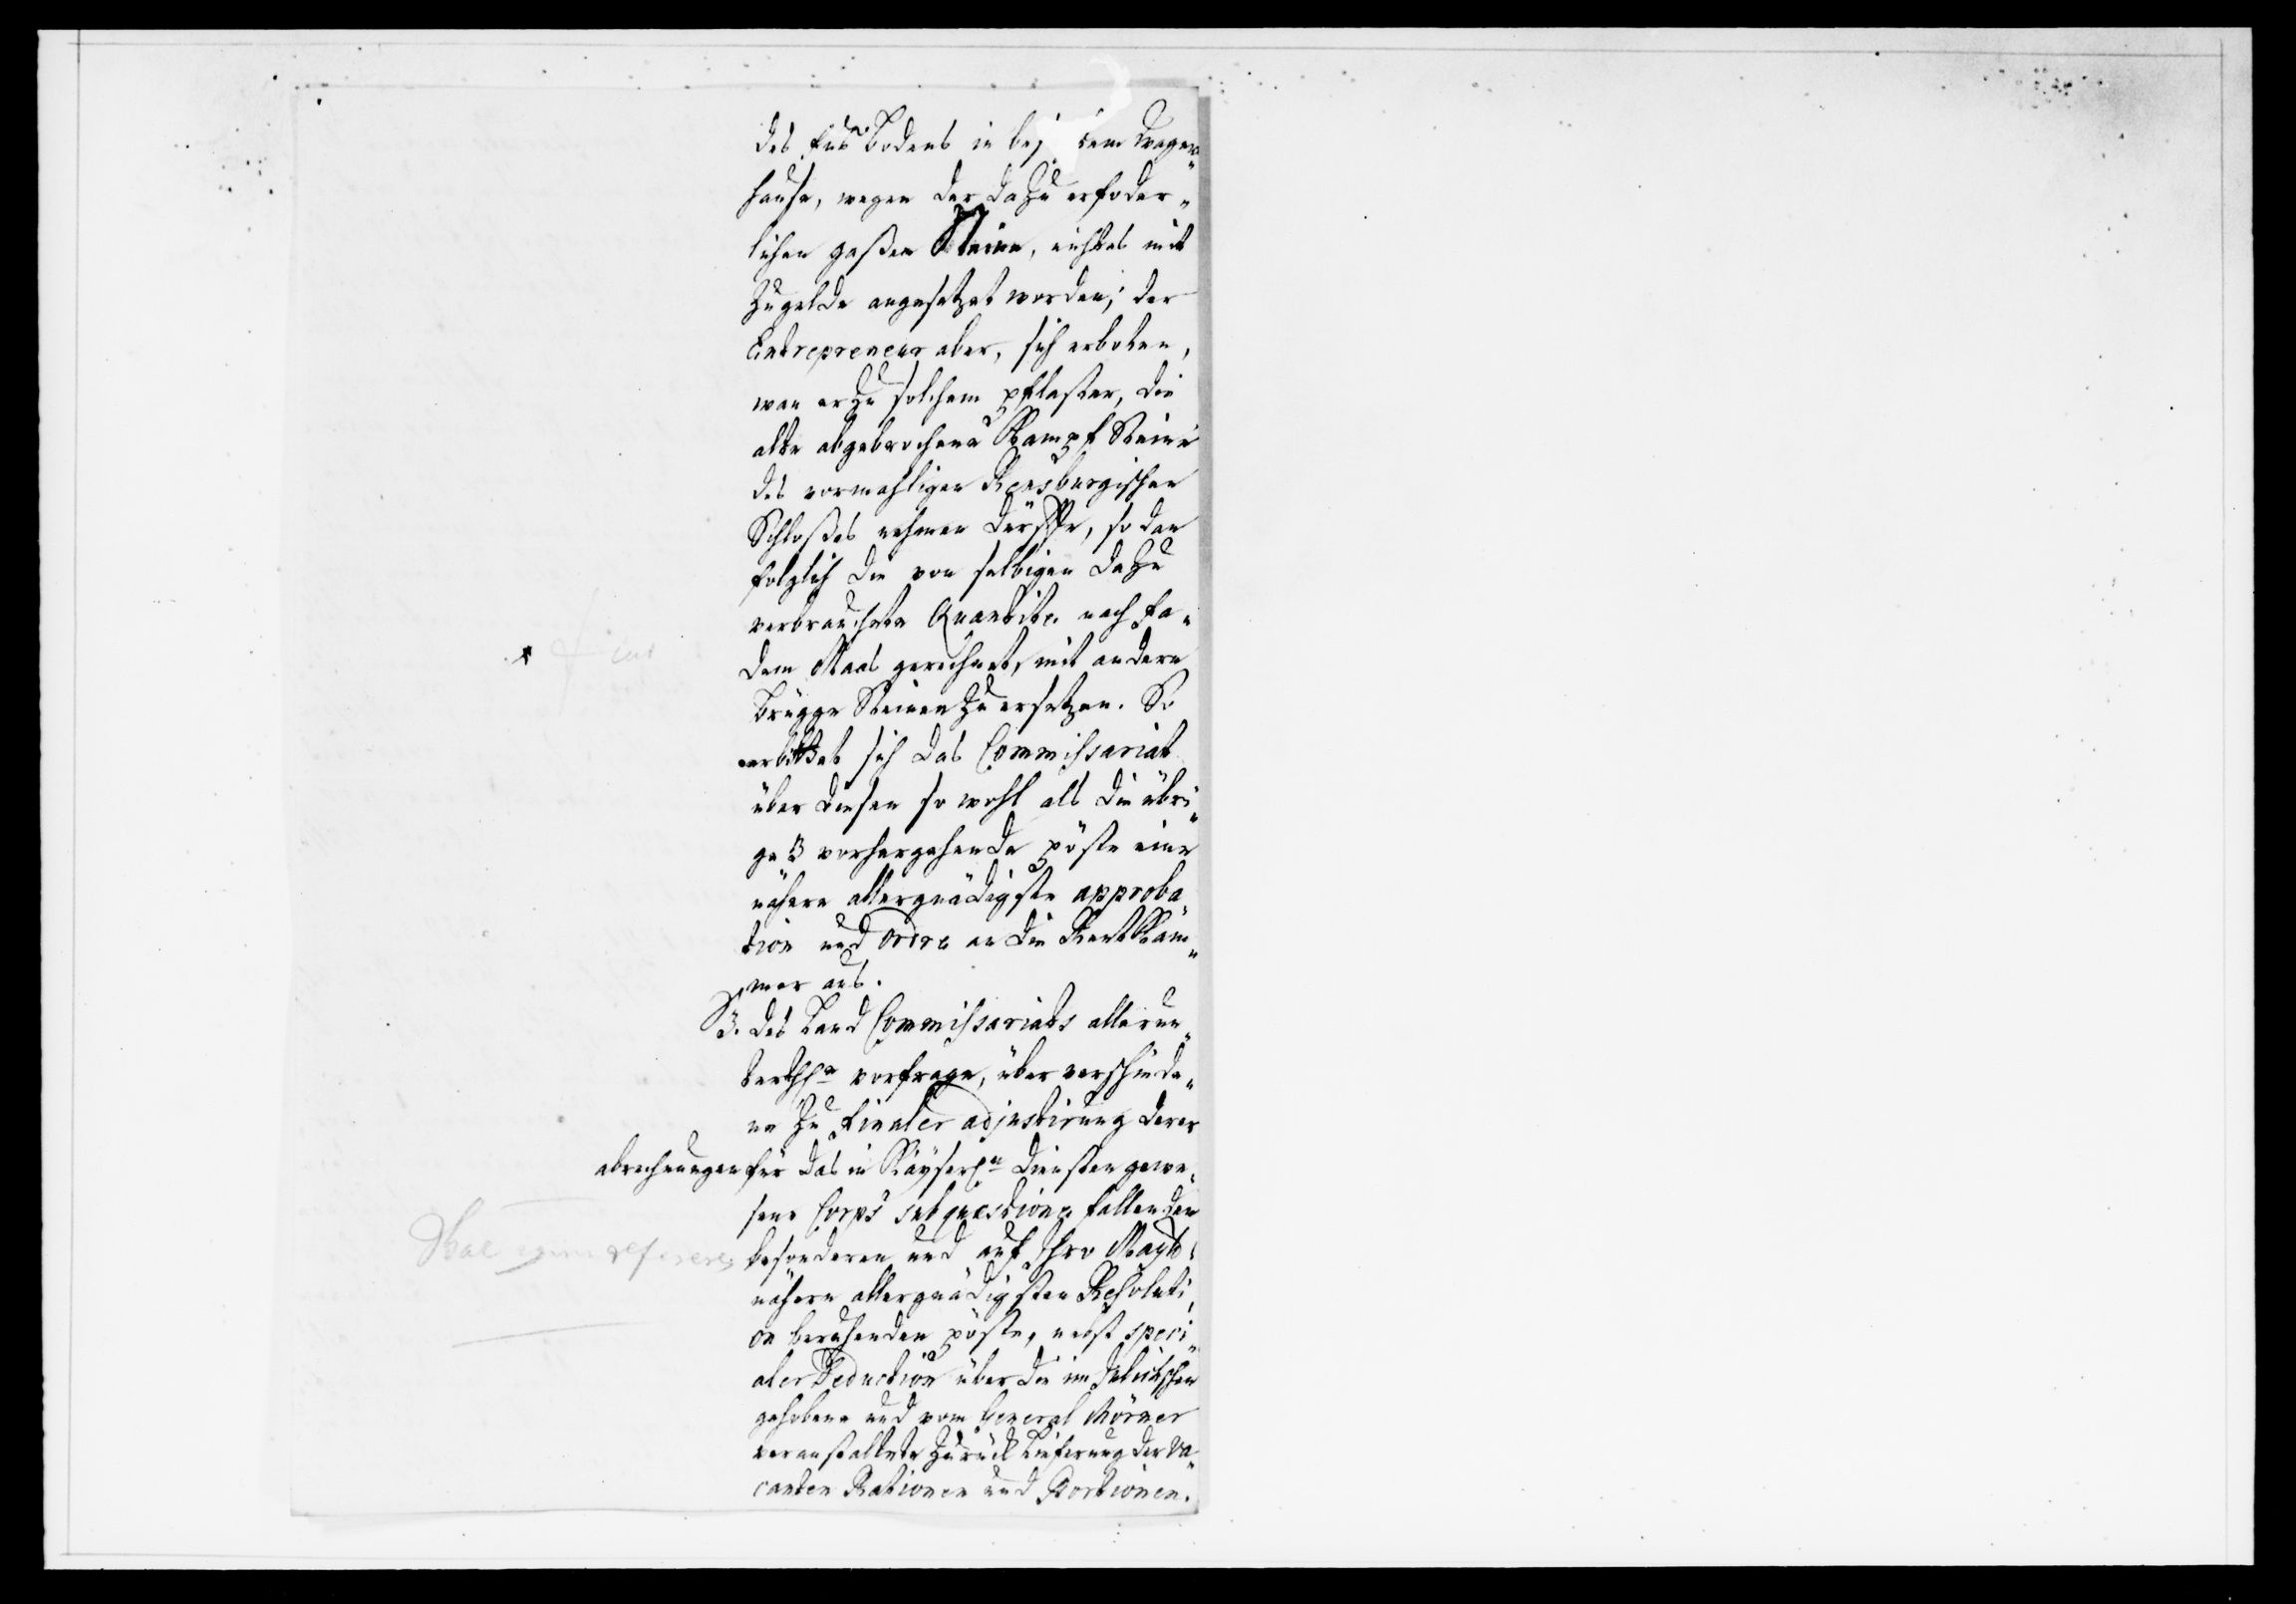 des fus bodens in bej dem Wagen„
hause, wegen der dazu erfoder„
lichen goßen Steine, nichtes mit
Zugelde angesetzet worden; der
Entrepreneur aber, sich erboten,
wan er zu solchem pflaster, die
alte abgebrochene Stampf Steine
des vormahligen Rensburgischen
Schloßes nehmen dürffte, so dan
folglich die von selbigen dazu
verbrauchete Quantite nach fa„
dem Maas gerechnet, mit andern
Brügge Steinen zu ersetzen. So
erbittet sich das Commissariat
über diesen so wohl als die übri„
ge 3 vorhergehende pöste eine
nähere allergnädigste approba„
tion und Ordre an die Rentkam„
mer aus.
3. des Land Commissariats allerun„
terthgn vorfrage, über verschiede„
ne zu finaler adjustirung derer
abrechnungen für das in Kayserln Diensten gewe„
sene Corps sub quæstione fallenden
besonderen und auf Ihro Mayt:
nähern allergnädigsten Resoluti„
on beruhenden pöste, nebst speci„
aler Deduction über die im
gehobene und vom General Mörner
veranstaltete Zurück Lieferung der va„
canten Rationen und Portionen.